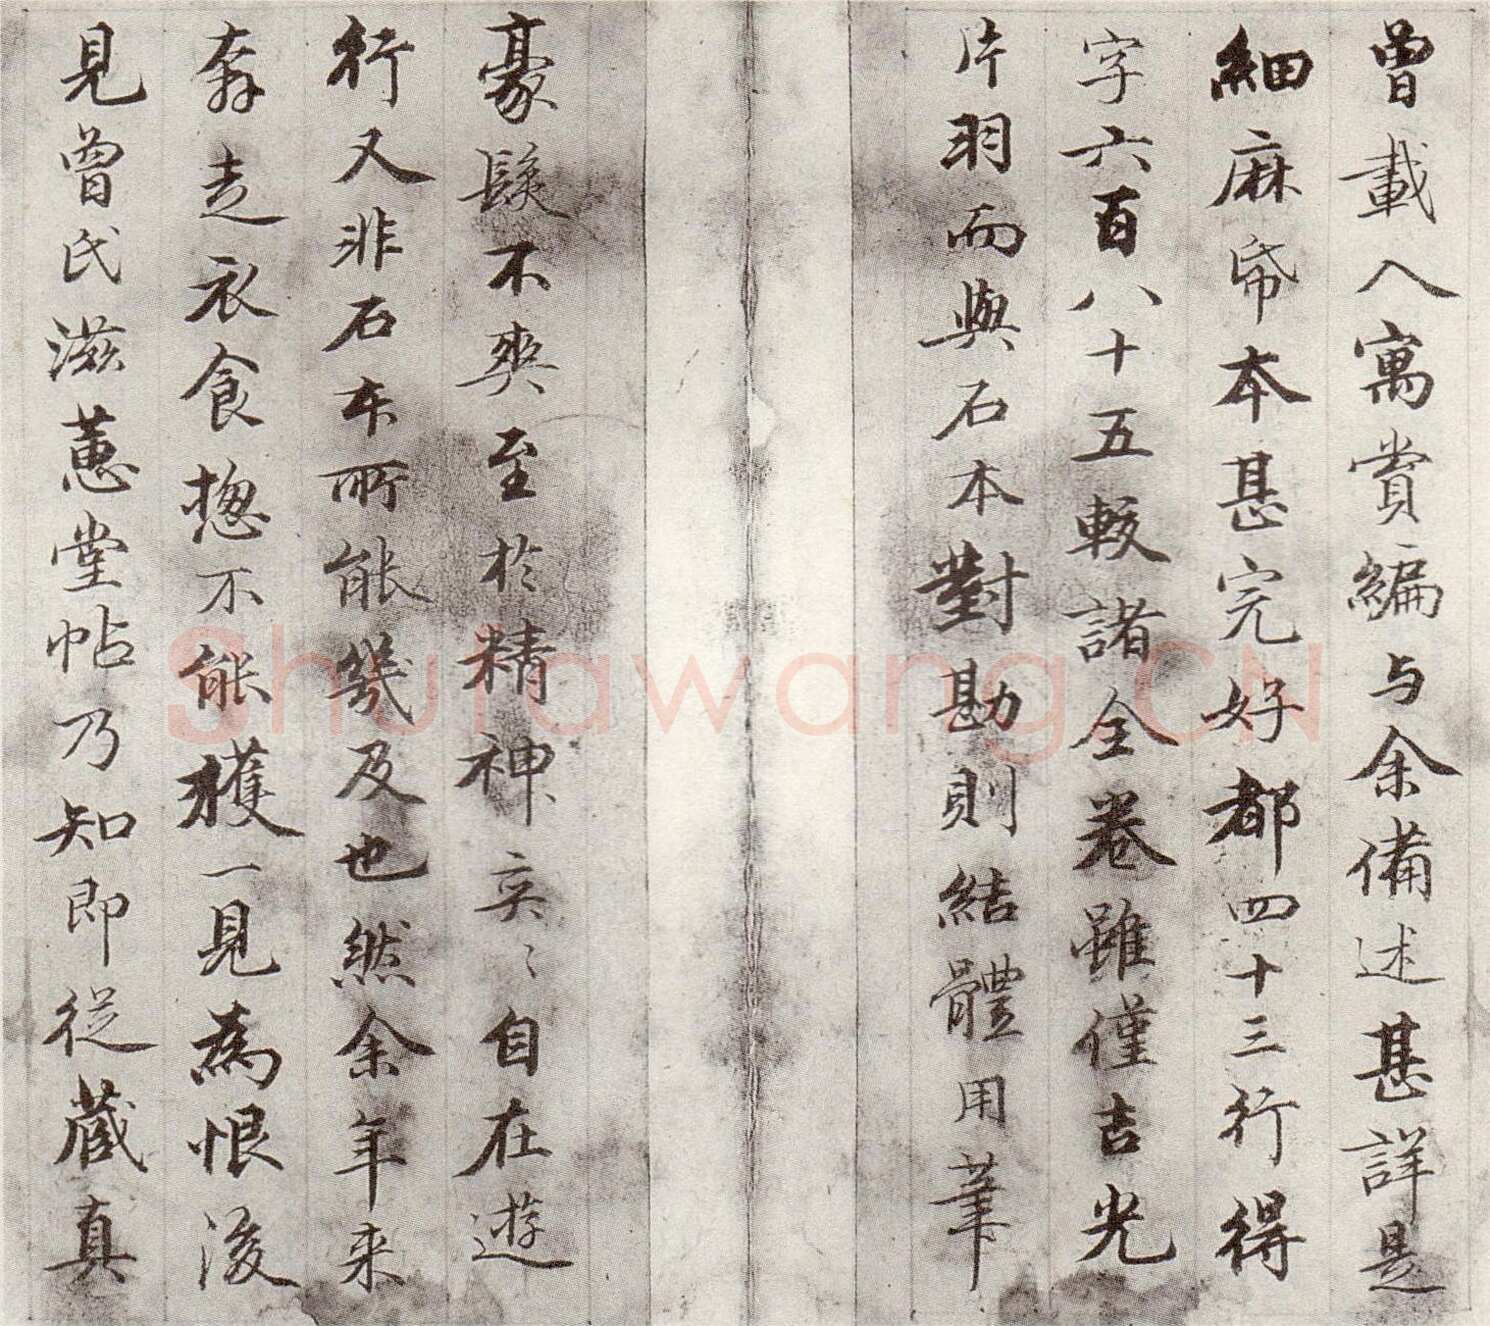 曾載入寓賞編与余備述甚詳是
細麻帋本甚完好都四十三行得
字六百八十五較諸全卷雖僅吉光
片羽而與石本對勘則結體用筆
豪髮不爽至於精神奕〻自在遊
行又非石本所能幾及也然余年来
奔走衣食揔不能獲一見為恨後
見曾氏滋蕙堂帖乃知即從蔵真
Shufawang.CN